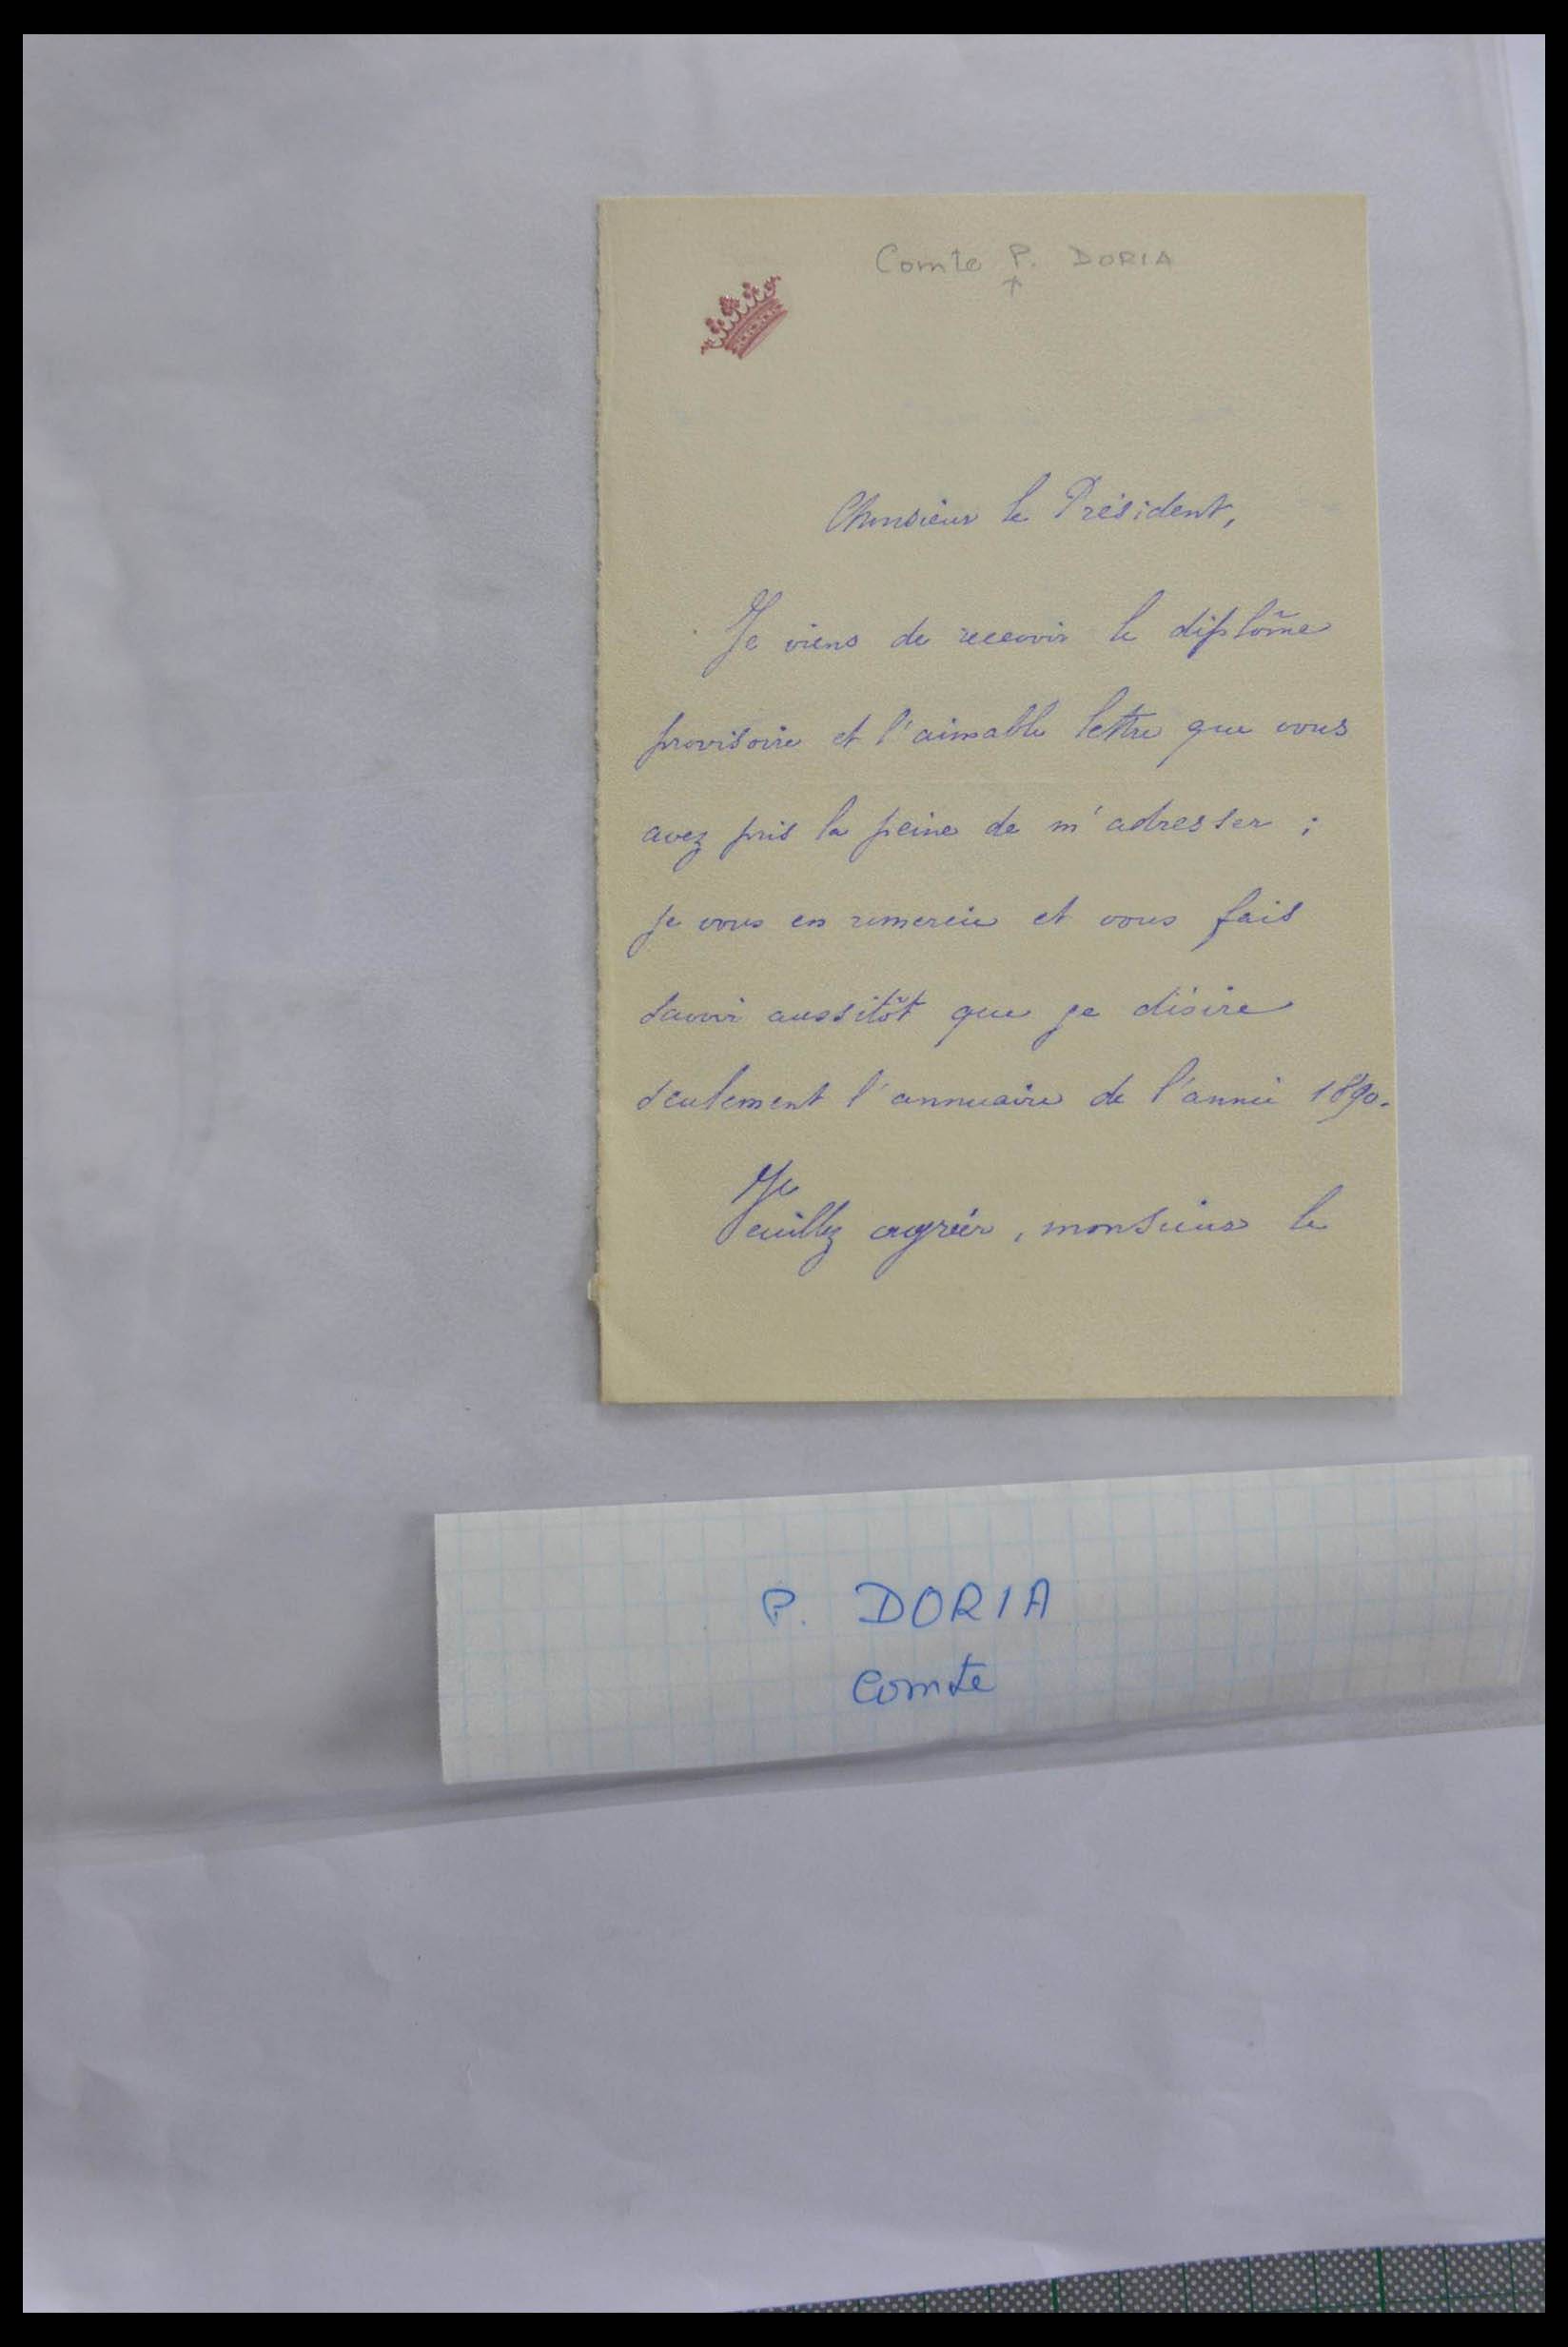 Comte P. DORIA
Monsieur le Président,
Je viens de recevoir le diplôme
provisoire et l'aimable lettre que vous
avez pris la peine de m'adresser ;
je vous en remercie et vous fais
savoir aussitôt que je désire
seulement l'annuaire de l'année 1890.
Veuillez agréer, monsieur le
P. DORIA
Comte